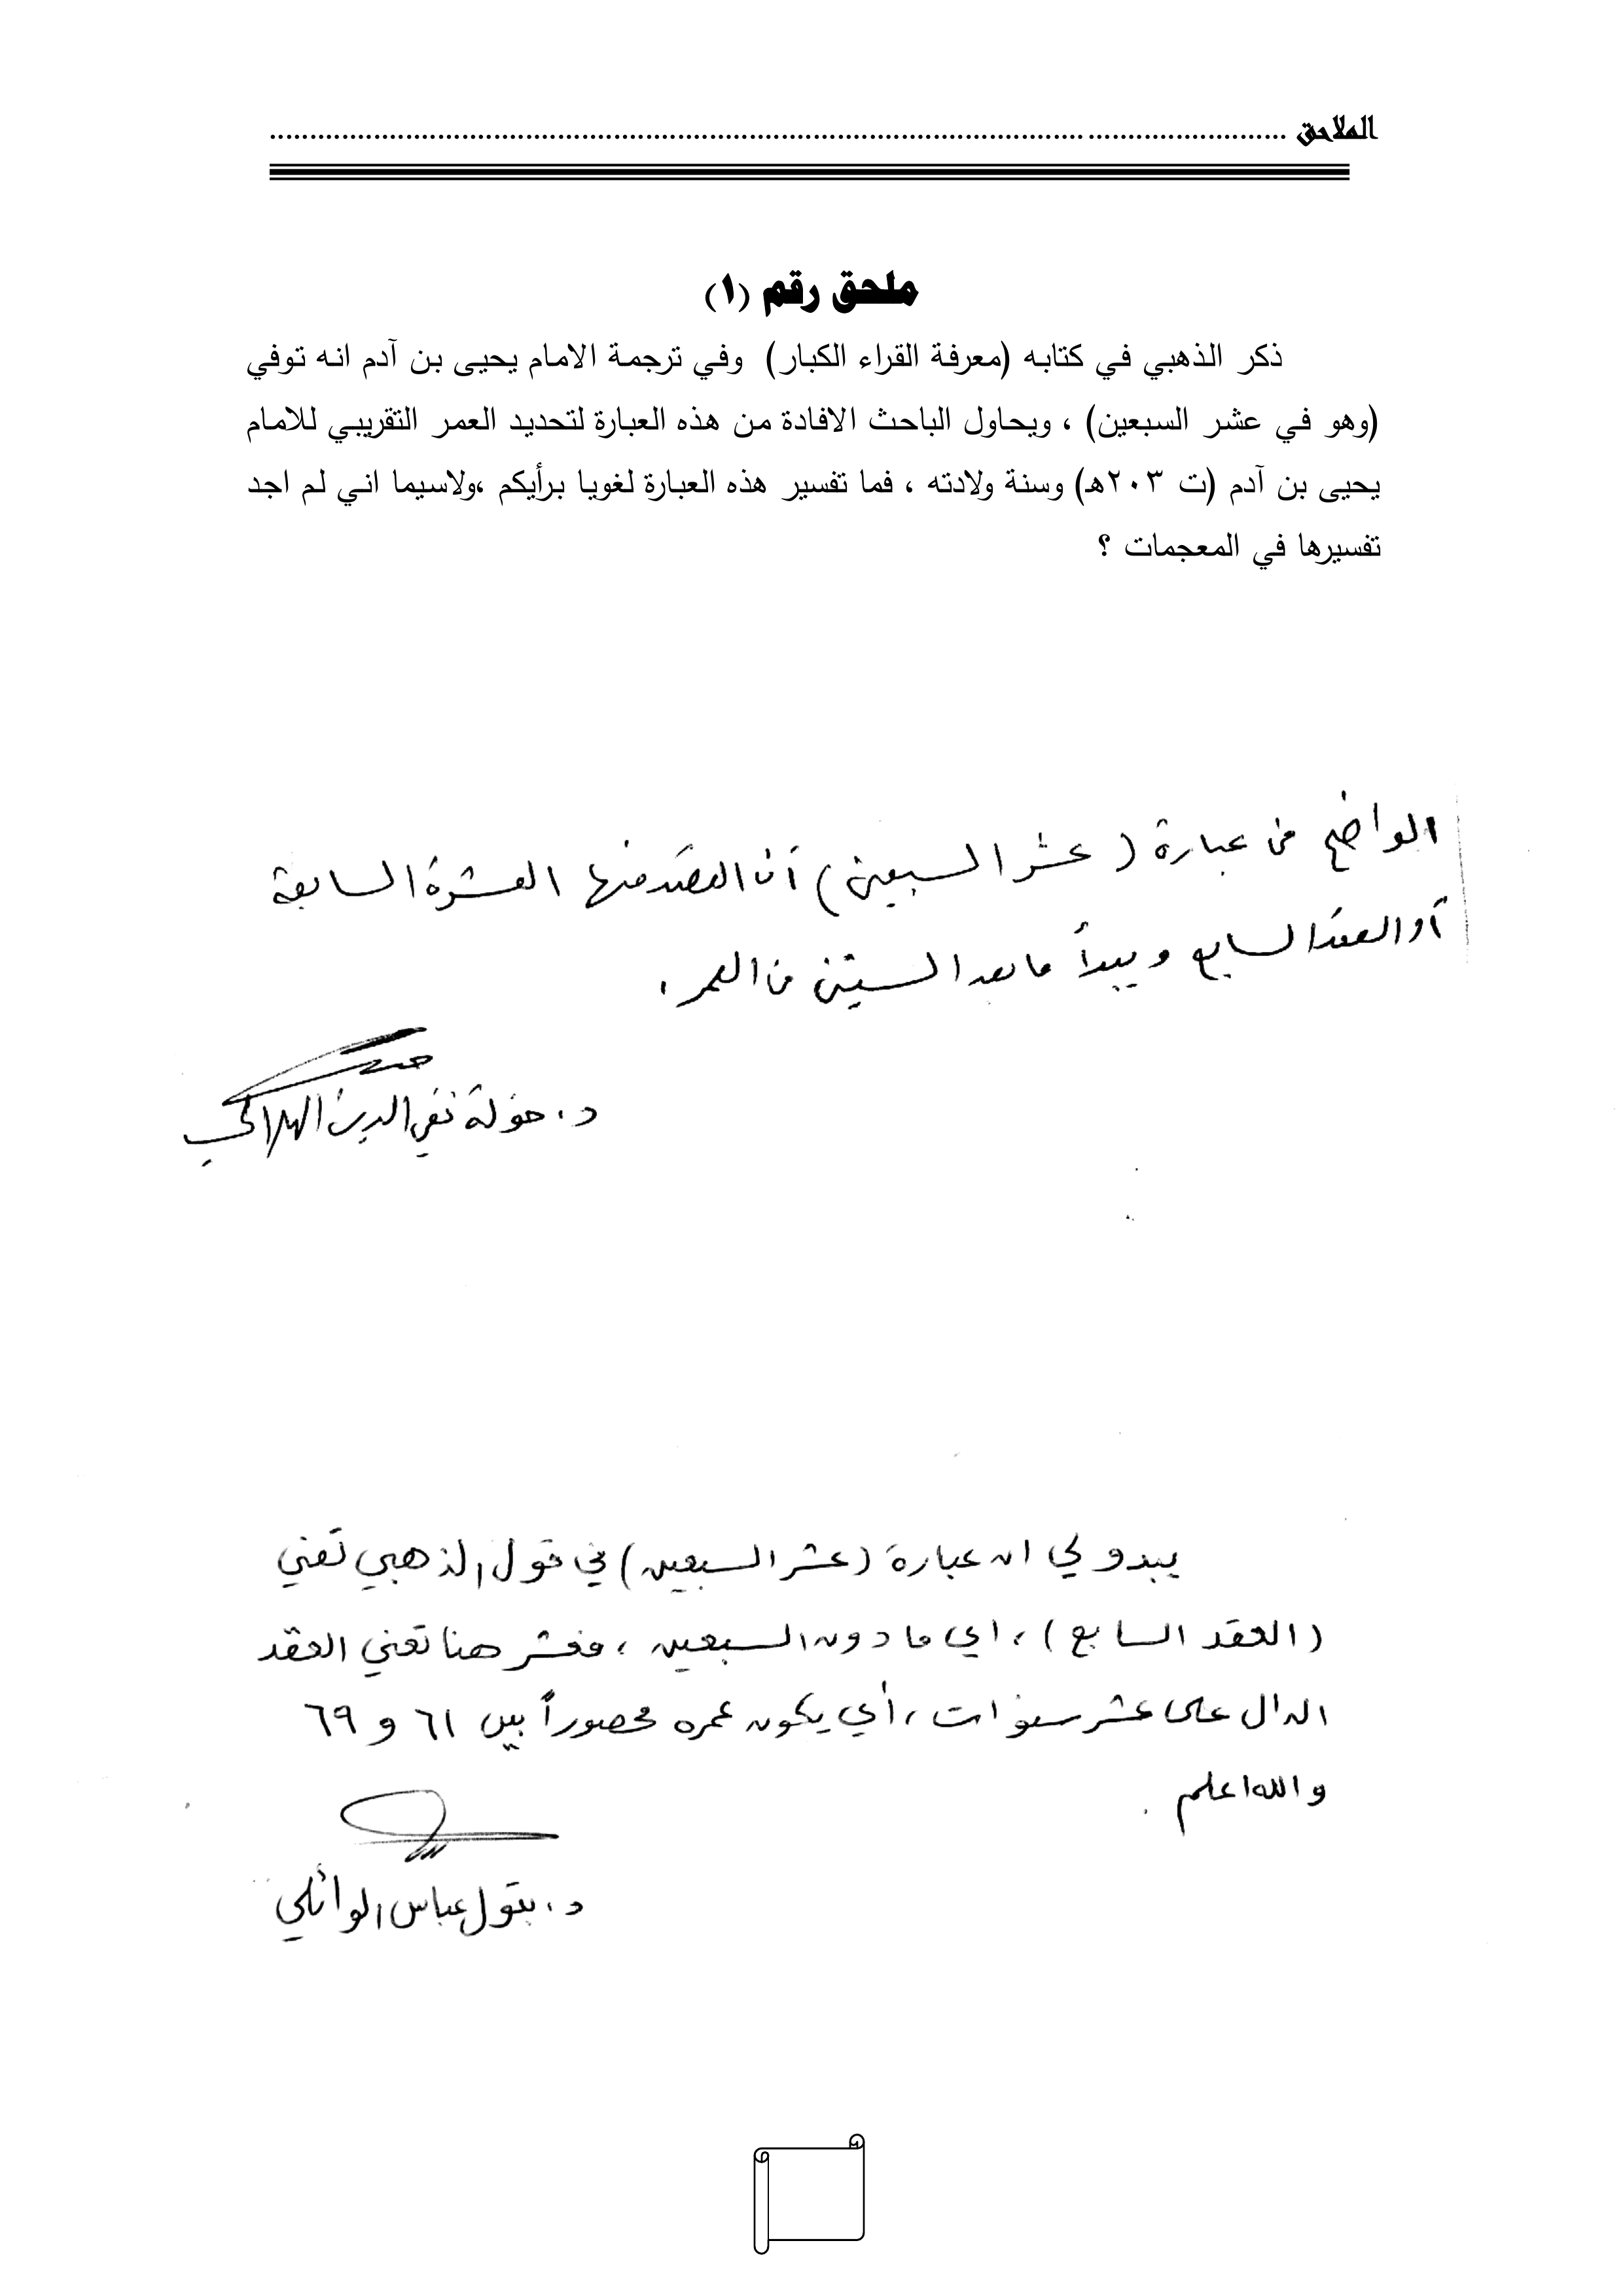 الملاحق ................................................................................................................................
ملحق رقم (١)
ذكر الذهبي في كتابه (معرفة القراء الكبار) وفي ترجمة الامام يحيى بن آدم انه توفي
(وهو في عشر السبعين) ، ويحاول الباحث الافادة من هذه العبارة لتحديد العمر التقريبي للامام
يحيى بن آدم (ت ٢٠٣هـ) وسنة ولادته ، فما تفسير هذه العبارة لغويا برأيكم ،ولاسيما اني لم اجد
تفسيرها في المعجمات ؟
الواضح من عبارة (عشر السبعين) أن القصد منها العشرة السابعة
أو العقد السابع ويبدأ ما بعد الستين من العمر .
د. خولة تقي الدين الهلالي
يبدو لي ان عبارة (عشر السبعين) في قول الذهبي تعني
(العقد السابع) ، اي ما دون السبعين ، فعشر هنا تعني العقد
الدال على عشر سنوات ، أي يكون عمره محصوراً بين ٦١ و ٦٩
والله اعلم .
د. بتول عباس الوائلي